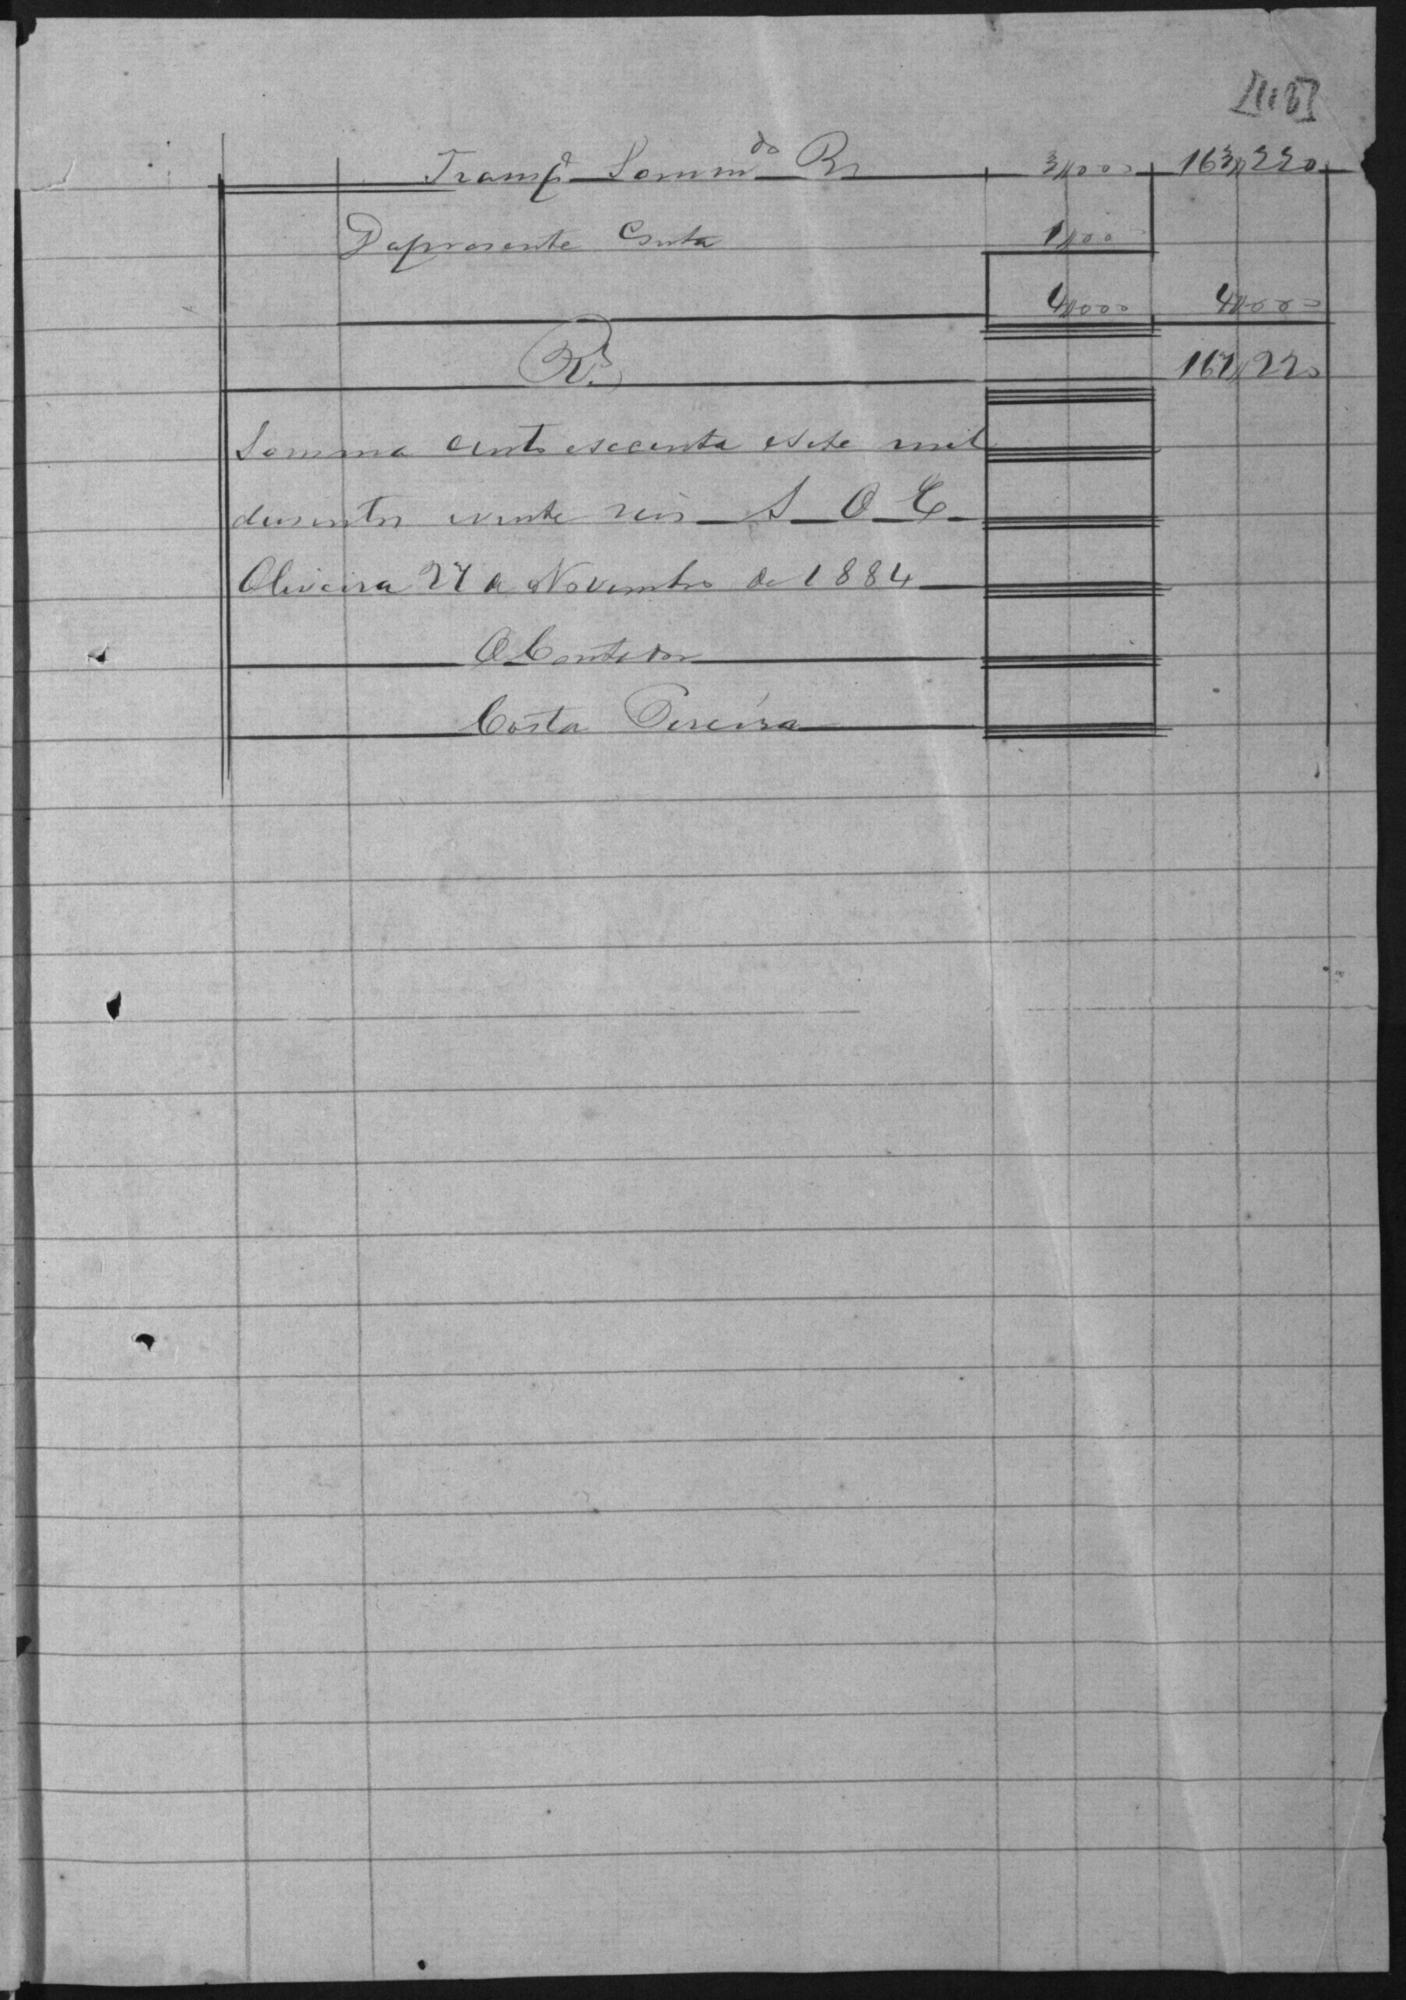 [118]
Transpe Sommdo Rs 3,,000 163,,220
Dapresente Conta 1,,000
4,,000 4,,000
Rs 167,,220
Somma cento esecenta esete mil
dusentos evinte reis S O E
Oliveira 27 de Novembro de 1884
O Contador
Costa Pereira